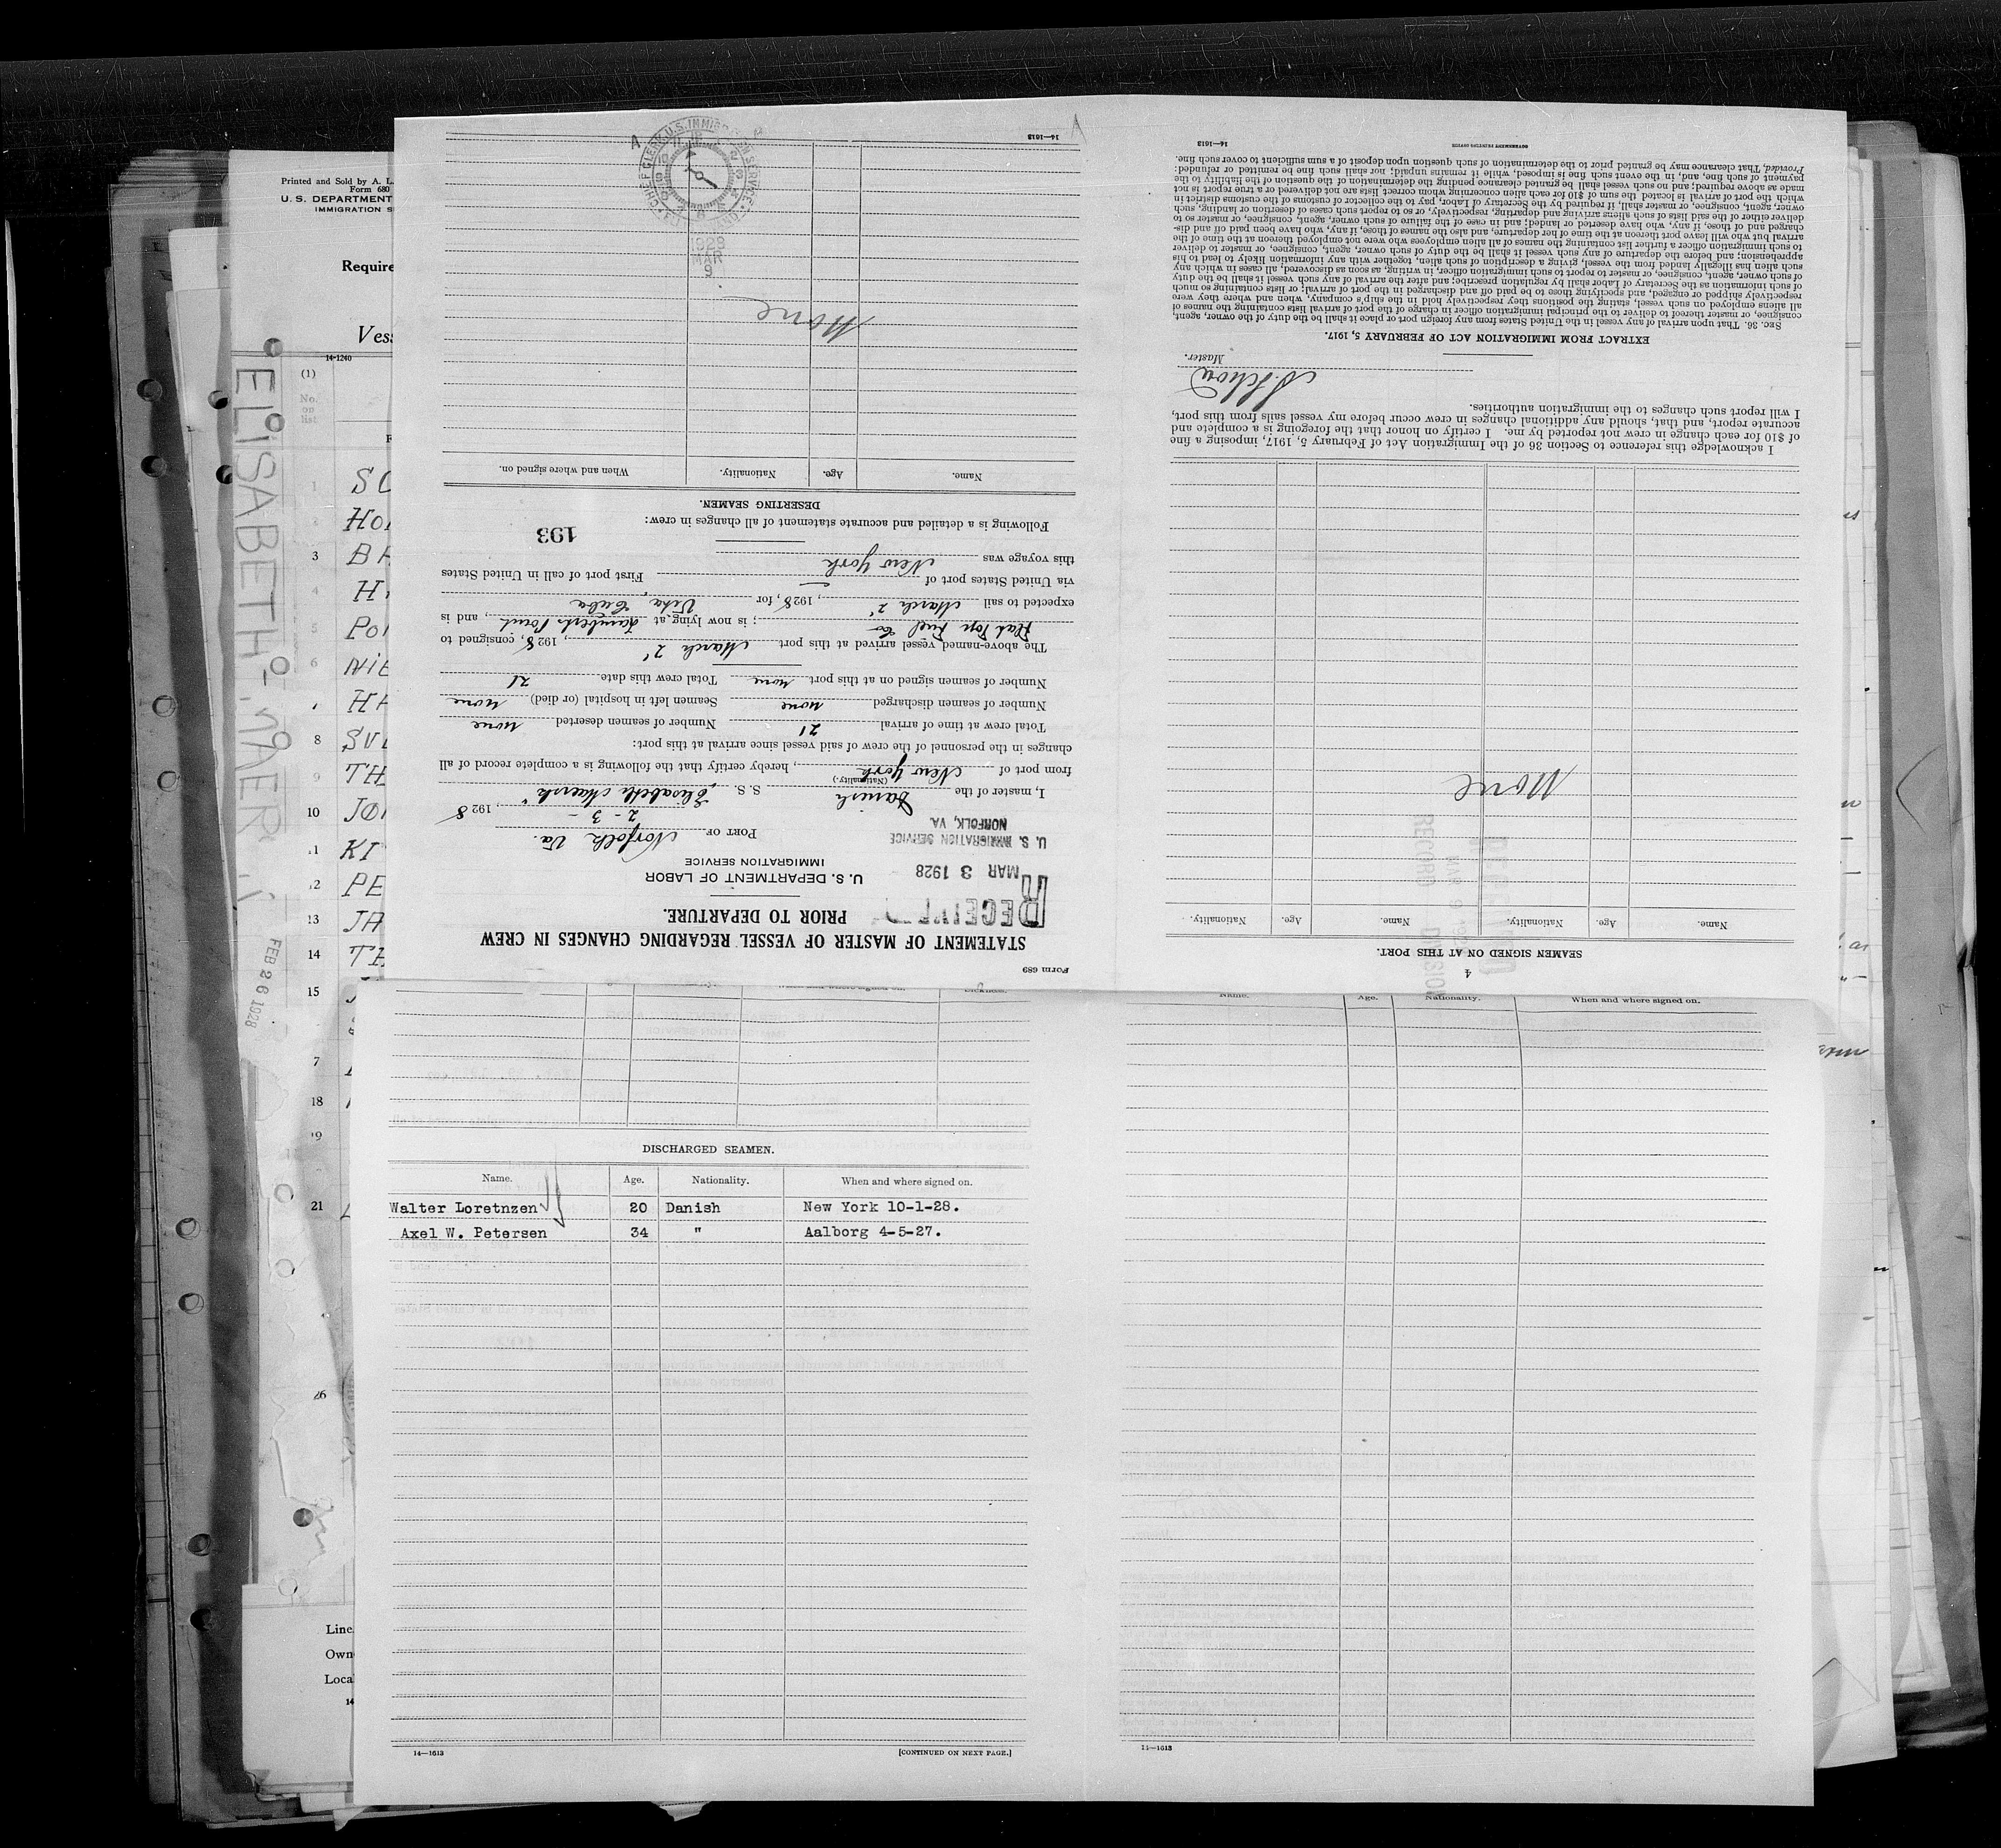 Printed and Sold by A. L.
Form 680
U. S. DEPARTMENT
IMMIGRATION S
Require
Vess
14-1240
(1)
No.
on
list
F
1 SC
HO
3 BA
4 H
5 PO
6 NIE
HA
8 SV
9 TH
10 JO
11 KI
12 PE
13 JA
14 TH
15
7
18
19
21
26
ELISABETH MÆR
FEB 26 1928
Line
Own
Loca
14
Form 689
STATEMENT OF MASTER OF VESSEL REGARDING CHANGES IN CREW
PRIOR TO DEPARTURE.
RECEIVED
MAR 3 1928
U. S. IMMIGRATION SERVICE
NORFOLK, VA.
U. S. DEPARTMENT OF LABOR
IMMIGRATION SERVICE
PORT OF Norfolk Va.
2 - 3 - , 1928
I, master of the Danish S. S. "Elisabeth Maersk"
(Nationality.)
from port of New York, hereby certify that the following is a complete record of all
changes in the personnel of the crew of said vessel since arrival at this port:
Total crew at time of arrival 21 Number of seamen deserted none
Number of seamen discharged none Seamen left in hospital (or died) none
Number of seamen signed on at this port none Total crew this date 21
The above-named vessel arrived at this port March 2', 1928, consigned to
Flat Top Fuel Co; is now lying at Lamberts Point, and is
expected to sail March 2', 1928, for Vita, Cuba
via United States port of — First port of call in United States
this voyage was New York
Following is a detailed and accurate statement of all changes in crew:
193
DESERTING SEAMEN.
Name. Age. Nationality. When and where signed on.
None
CHIEF CLERK U.S. IMMIGRATION SERVICE
1928
MAR
9
14—1613
4
SEAMEN SIGNED ON AT THIS PORT.
Name. Age. Nationality. Name. Age. Nationality.
RECEIVED
MAR 9 1928
RECORD DIVISION
None
I acknowledge this reference to Section 36 of the Immigration Act of February 5, 1917, imposing a fine
of $10 for each change in crew not reported by me. I certify on honor that the foregoing is a complete and
accurate report, and that, should any additional changes in crew occur before my vessel sails from this port,
I will report such changes to the immigration authorities.
Master.
EXTRACT FROM IMMIGRATION ACT OF FEBRUARY 5, 1917.
SEC. 36. That upon arrival of any vessel in the United States from any foreign port or place it shall be the duty of the owner, agent,
consignee, or master thereof to deliver to the principal immigration officer in charge of the port of arrival lists containing the names of
all aliens employed on such vessel, stating the positions they respectively hold in the ship's company, when and where they were
respectively shipped or engaged, and specifying those to be paid off and discharged in the port of arrival; or lists containing so much
of such information as the Secretary of Labor shall by regulation prescribe; and after the arrival of any such vessel it shall be the duty
of such owner, agent, consignee, or master to report to such immigration officer, in writing, as soon as discovered, all cases in which any
such alien has illegally landed from the vessel, giving a description of such alien, together with any information likely to lead to his
apprehension; and before the departure of any such vessel it shall be the duty of such owner, agent, consignee, or master to deliver
to such immigration officer a further list containing the names of all alien employees who were not employed thereon at the time of the
arrival but who will leave port thereon at the time of her departure, and also the names of those, if any, who have been paid off and dis-
charged and of those, if any, who have deserted or landed; and in case of the failure of such owner, agent, consignee, or master so to
deliver either of the said lists of such aliens arriving and departing, respectively, or so to report such cases of desertion or landing, such
owner, agent, consignee, or master shall, if required by the Secretary of Labor, pay to the collector of customs of the customs district in
which the port of arrival is located the sum of $10 for each alien concerning whom correct lists are not delivered or a true report is not
made as above required; and no such vessel shall be granted clearance pending the determination of the question of the liability to the
payment of such fine, and, in the event such fine is imposed, while it remains unpaid; nor shall such fine be remitted or refunded:
Provided, That clearance may be granted prior to the determination of such question upon deposit of a sum sufficient to cover such fine.
14—1613
GOVERNMENT PRINTING OFFICE
Name. Age. Nationality. When and where signed on.
DISCHARGED SEAMEN.
Name. Age. Nationality. When and where signed on.
Walter Loretnzen 20 Danish New York 10-1-28.
Axel W. Petersen 34 " Aalborg 4-5-27.
14—1613
[CONTINUED ON NEXT PAGE.]
14—1613